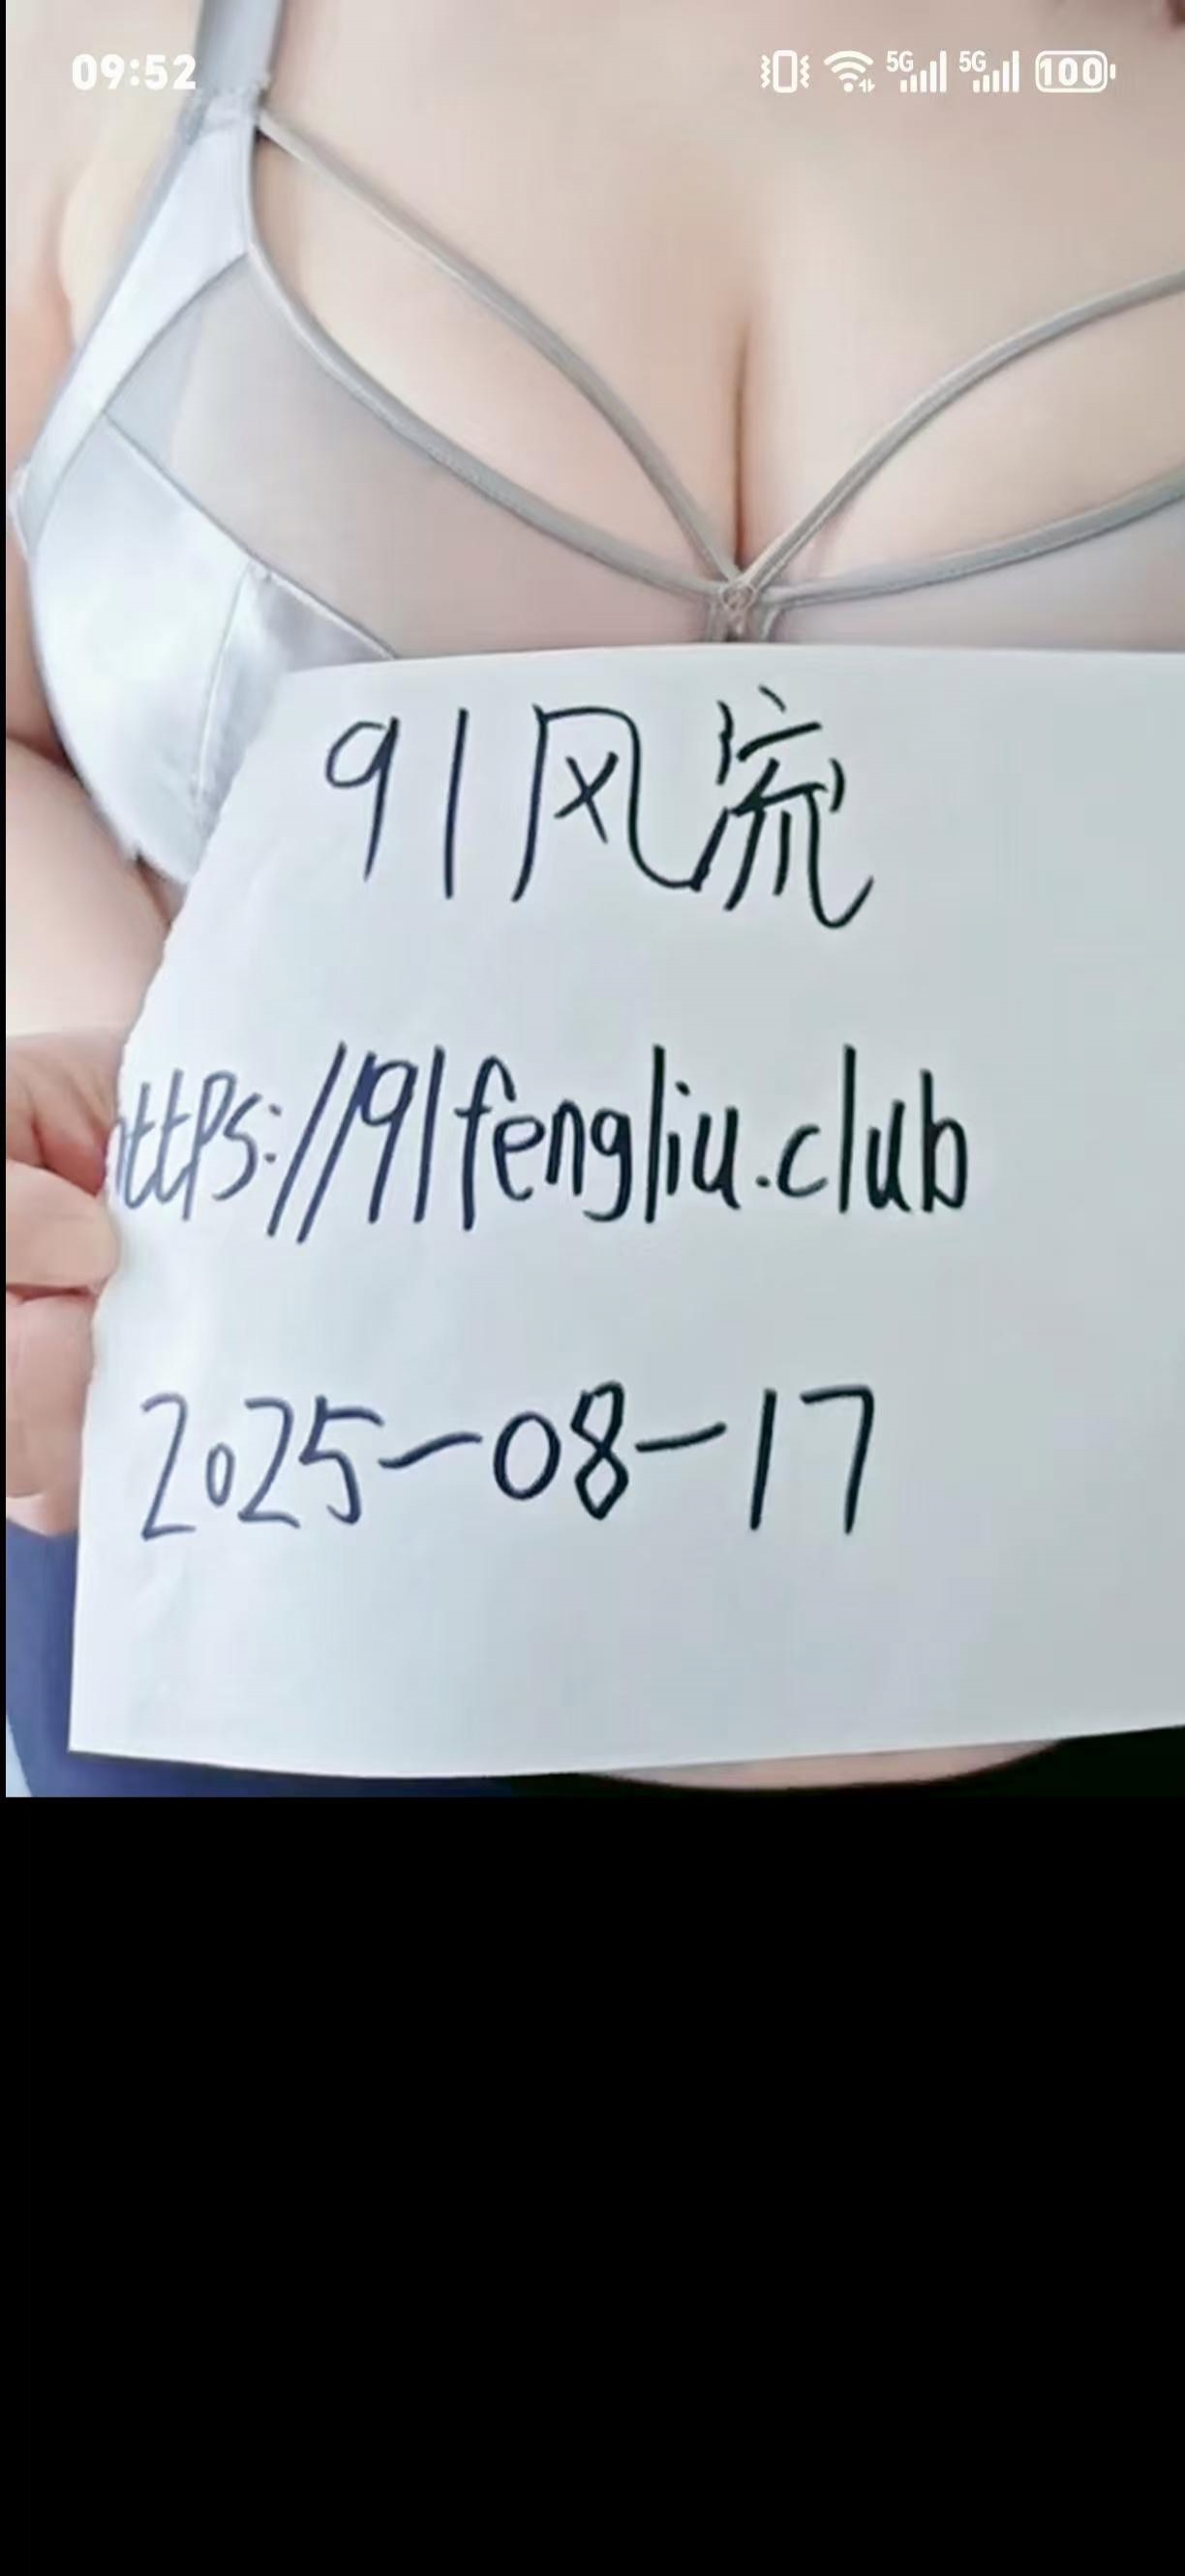 09:52 5G 5G 100
91风流
https://91fengliu.club
2025-08-17